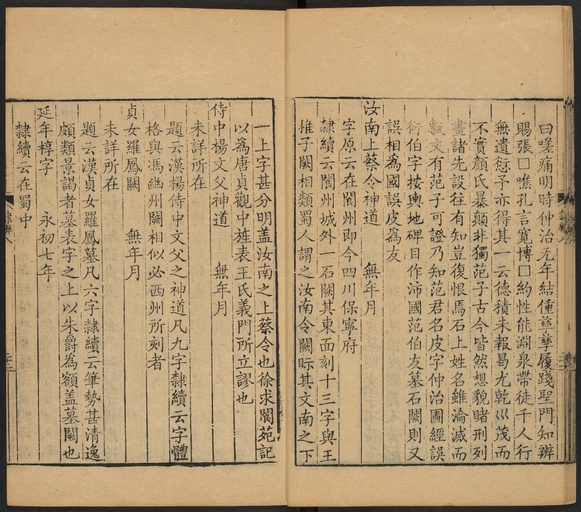 曰嗟痛明時仲治无年結僮慈孳履踐聖門知辨
賜張□噍孔言寬博□約性能淵泉帶徒千人行
無遺愆予亦得其一云德積未報曷尤乾巛茂而
不實顏氏暴顛非獨范子古今皆然想貌睹刑列
畫諸先設往有知豈復恨焉石上姓名雖淪滅而
甎文有范子可證乃知范君名皮字仲治圖經誤
衍伯字按輿地碑目作沛國范伯友墓石闕則又
誤相為國誤皮為友
汝南上蔡令神道 無年月
字原云在閬州即今四川保寧府
隸續云閬州城外一石闕其東面刻十三字與王
稚子闕相類蜀人謂之汝南令闕眎其文南之下
一上字甚分明盖汝南之上蔡令也徐求閬苑記
以為唐貞觀中旌表王氏義門所立謬也
侍中楊文父神道 無年月
未詳所在
題云漢揚侍中文父之神道凡九字隸續云字體
格與馮緄州闕相似必西州所刻者
貞女羅鳳闕 無年月
未詳所在
題云漢貞女羅鳳墓凡六字隸續云筆勢甚清逸
頗類景謁者墓表字之上以朱爵為額盖墓闕也
延年椁字 永初七年
隸續云在蜀中